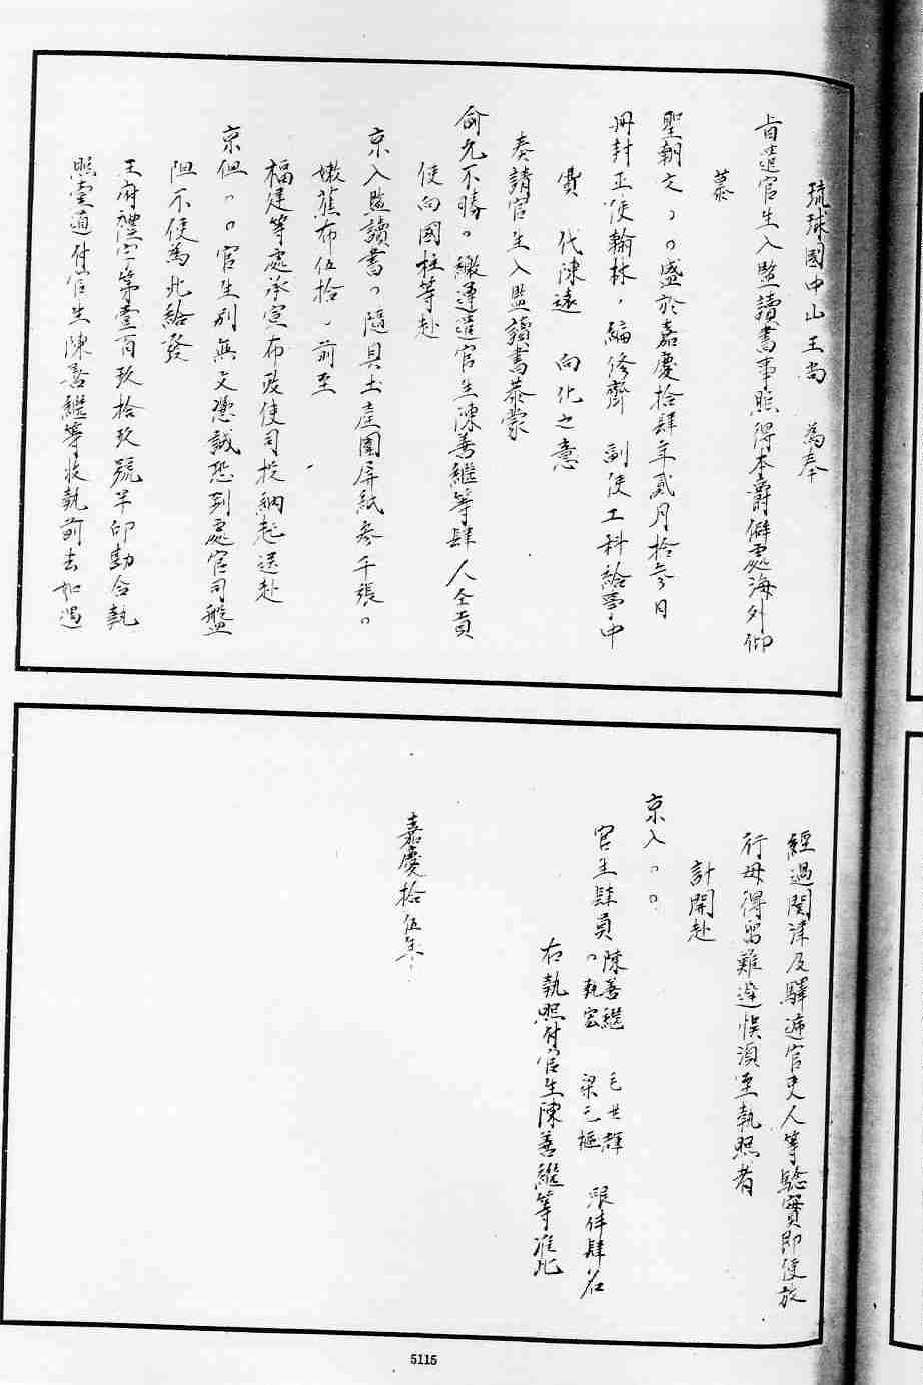 琉球國中山王尚　為奉
旨遣官生入監讀書事照得本爵僻處海外仰
慕
聖朝文〻。盛於嘉慶拾肆年貳月拾參日
冊封正使翰林，編修齊　副使工科給事中
費　代陳遠　向化之意
奏請官生入監讀書恭蒙
俞允不勝。繳運遣官生陳善繼等肆人仝貢
使向國柱等赴
京入監讀書。隨具土產圍屏紙參千張。
嫩蕉布伍拾、前至
福建等處承宣布政使司投納起送赴
京但。。官生別無文憑誠恐到處官司盤
阻不便為此給發
王府禮字第壹百玖拾玖號半印勘合執
照壹道付官生陳善繼等收執前去如遇
經過關津及驛遞官吏人等驗實即便放
行毋得留難遲悞須至執照者
計開赴
京入。。
官生肆員　陳善繼　毛世輝
。執宏　梁元樞　跟伴肆名
右執照付官生陳善繼等准此
嘉慶拾伍年
5115